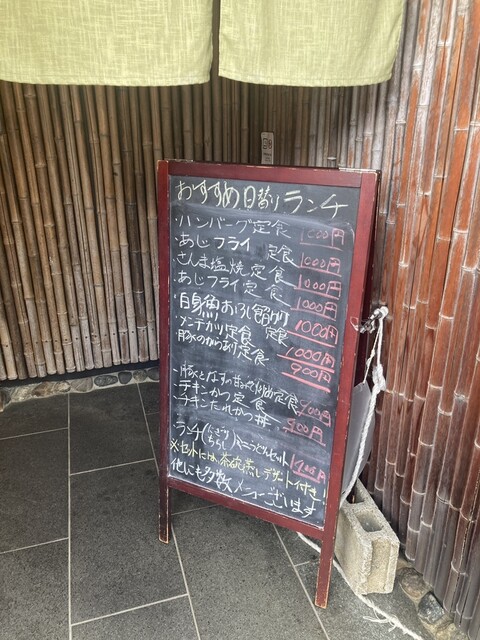 おすすめ日替りランチ
・ハンバーグ定食 1000円
・あじフライ定食 1000円
さんま塩焼定食 1000円
あじフライ定食 1000円
・白身魚おろし餡かけ定食 1000円
・メンチカツ定食 1000円
・豚のからあげ定食 900円
・豚となすの甘みそ炒め定食 900円
・チキンかつ定食 900円
・チキンたれかつ丼
・ランチ(にぎりちらし)ミニうどんセット
※セットには、茶碗蒸し、デザート付き!
他にも多数メニューございます